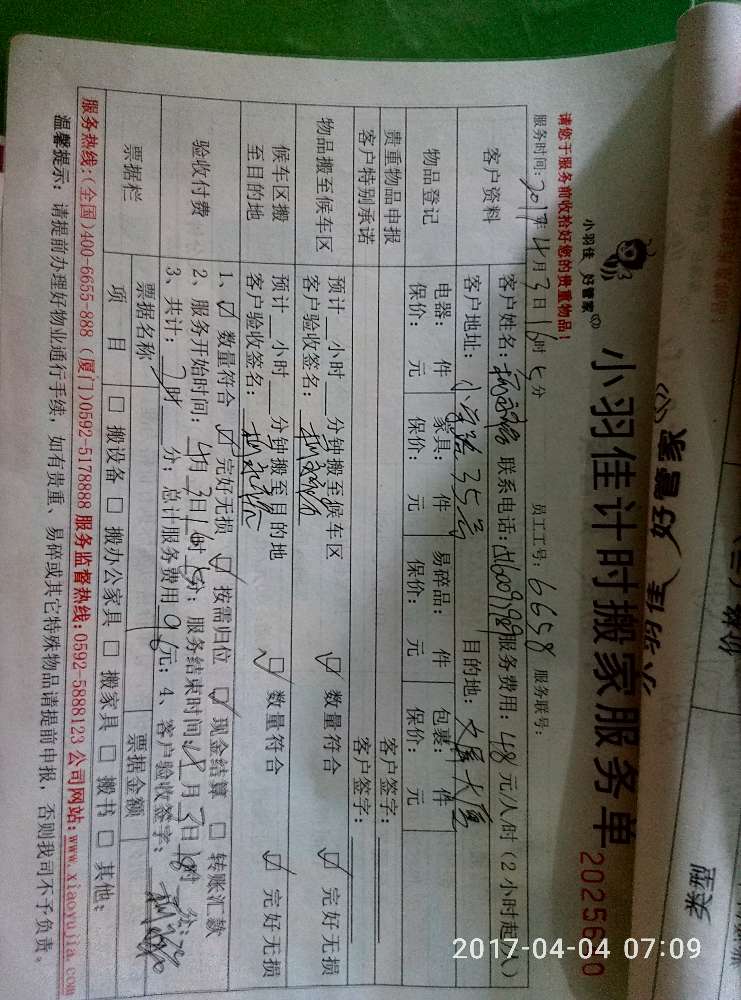 小羽佳 好管家
小羽佳计时搬家服务单
请您于服务前收拾好您的贵重物品！
服务时间：2017年4月3日16时 分 员工工号：6658 服务联号：
客户资料 客户姓名： 联系电话： 服务费用：48元/人/时（2小时起/人）
客户地址： 35号 目的地： 大厦
物品登记 电器： 件 家具： 件 易碎品： 件 包裹： 件
保价： 元 保价： 元 保价： 元 保价： 元
贵重物品申报 客户签字：
客户特别承诺 客户签字：
物品搬至候车区 预计 小时 分钟搬至候车区 ☑ 数量符合 ☑ 完好无损
客户验收签名：
候车区搬至目的地 预计 小时 分钟搬至目的地 ☑ 数量符合 ☑ 完好无损
客户验收签名：
验收付费 1、☑ 数量符合 ☑ 完好无损 ☑ 按需归位 ☑ 现金结算 □ 转账汇款
2、服务开始时间：4月3日16时 分；服务结束时间：4月3日18时 分；
3、共计：2时 分；总计服务费用 元；4、客户验收签字：
票据栏 票据名称 票据金额
项目 □ 搬设备 □ 搬办公家具 □ 搬家具 □ 搬书 □ 其他：
服务热线：(全国)400-6655-888 (厦门)0592-5178888 服务监督热线：0592-5888123 公司网站：www.xiaoyujia.com
温馨提示：请提前办理好物业通行手续，如有贵重、易碎或其它特殊物品请提前申报，否则我司不予负责。
好管家
类型
2017-04-04 07:09